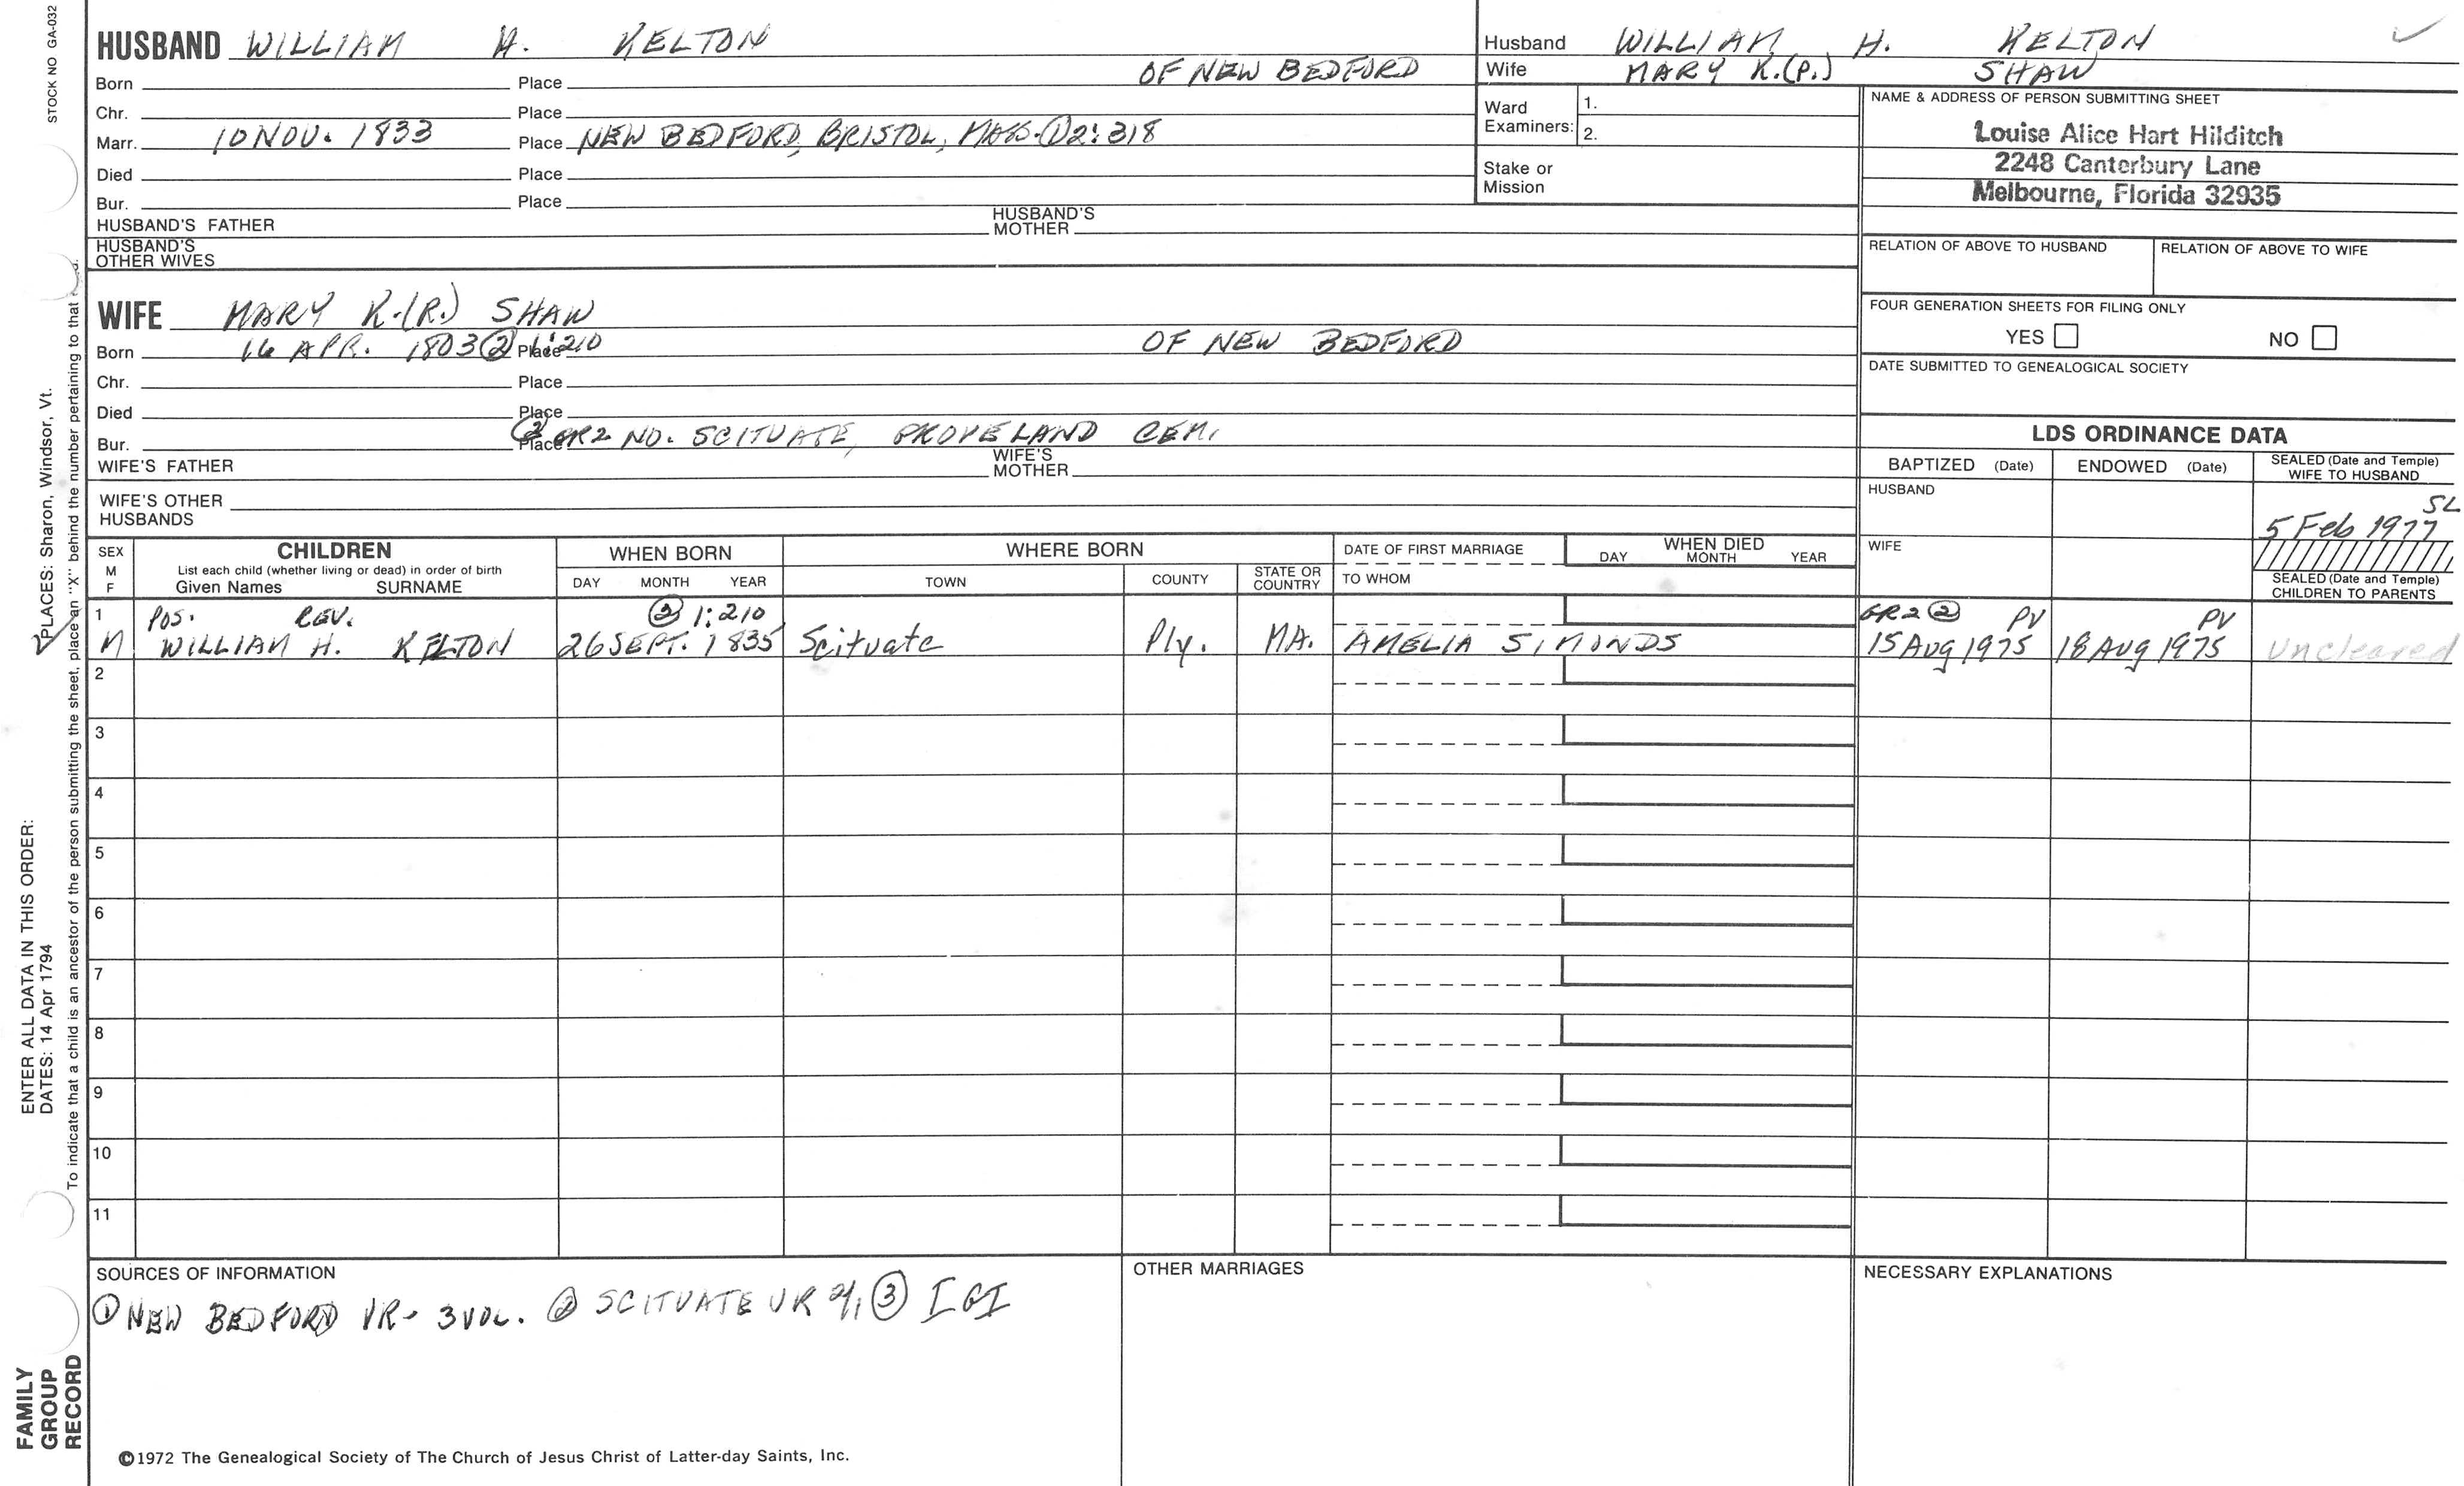 STOCK NO GA-032
HUSBAND WILLIAM H. KELTON
Born Place OF NEW BEDFORD
Chr. Place
Marr. 10 NOV. 1833 Place NEW BEDFORD, BRISTOL, MASS. ① 2:318
Died Place
Bur. Place
HUSBAND'S FATHER HUSBAND'S MOTHER
HUSBAND'S OTHER WIVES
Husband WILLIAM H. KELTON
Wife MARY K.(P.) SHAW
Ward Examiners: 1.
2.
Stake or Mission
NAME & ADDRESS OF PERSON SUBMITTING SHEET
Louise Alice Hart Hilditch
2248 Canterbury Lane
Melbourne, Florida 32935
RELATION OF ABOVE TO HUSBAND RELATION OF ABOVE TO WIFE
FOUR GENERATION SHEETS FOR FILING ONLY
YES NO
DATE SUBMITTED TO GENEALOGICAL SOCIETY
WIFE MARY K.(R.) SHAW
Born 16 APR. 1803 ② 1:210 Place OF NEW BEDFORD
Chr. Place
Died Place
Bur. Place ② GR2 NO. SCITUATE, CEM.
WIFE'S FATHER WIFE'S MOTHER
WIFE'S OTHER HUSBANDS
LDS ORDINANCE DATA
BAPTIZED (Date) ENDOWED (Date) SEALED (Date and Temple) WIFE TO HUSBAND
HUSBAND SL
5 Feb 1977
WIFE
SEALED (Date and Temple) CHILDREN TO PARENTS
SEX M F CHILDREN WHEN BORN WHERE BORN DATE OF FIRST MARRIAGE WHEN DIED
List each child (whether living or dead) in order of birth
Given Names SURNAME DAY MONTH YEAR TOWN COUNTY STATE OR COUNTRY TO WHOM DAY MONTH YEAR
1 POS. REV. ② 1:210 GR2 ② PV PV
M WILLIAM H. KELTON 26 SEPT. 1835 Scituate Ply. MA. AMELIA SIMONDS 15 AUG 1975 18 AUG 1975 Uncleared
2
3
4
5
6
7
8
9
10
11
SOURCES OF INFORMATION
① NEW BEDFORD VR- 3 VOL. ② SCITUATE VR ③ IGI
OTHER MARRIAGES
NECESSARY EXPLANATIONS
©1972 The Genealogical Society of The Church of Jesus Christ of Latter-day Saints, Inc.
ENTER ALL DATA IN THIS ORDER:
DATES: 14 Apr 1794 PLACES: Sharon, Windsor, Vt.
To indicate that a child is an ancestor of the person submitting the sheet, place an "X" behind the number pertaining to that
FAMILY
GROUP
RECORD